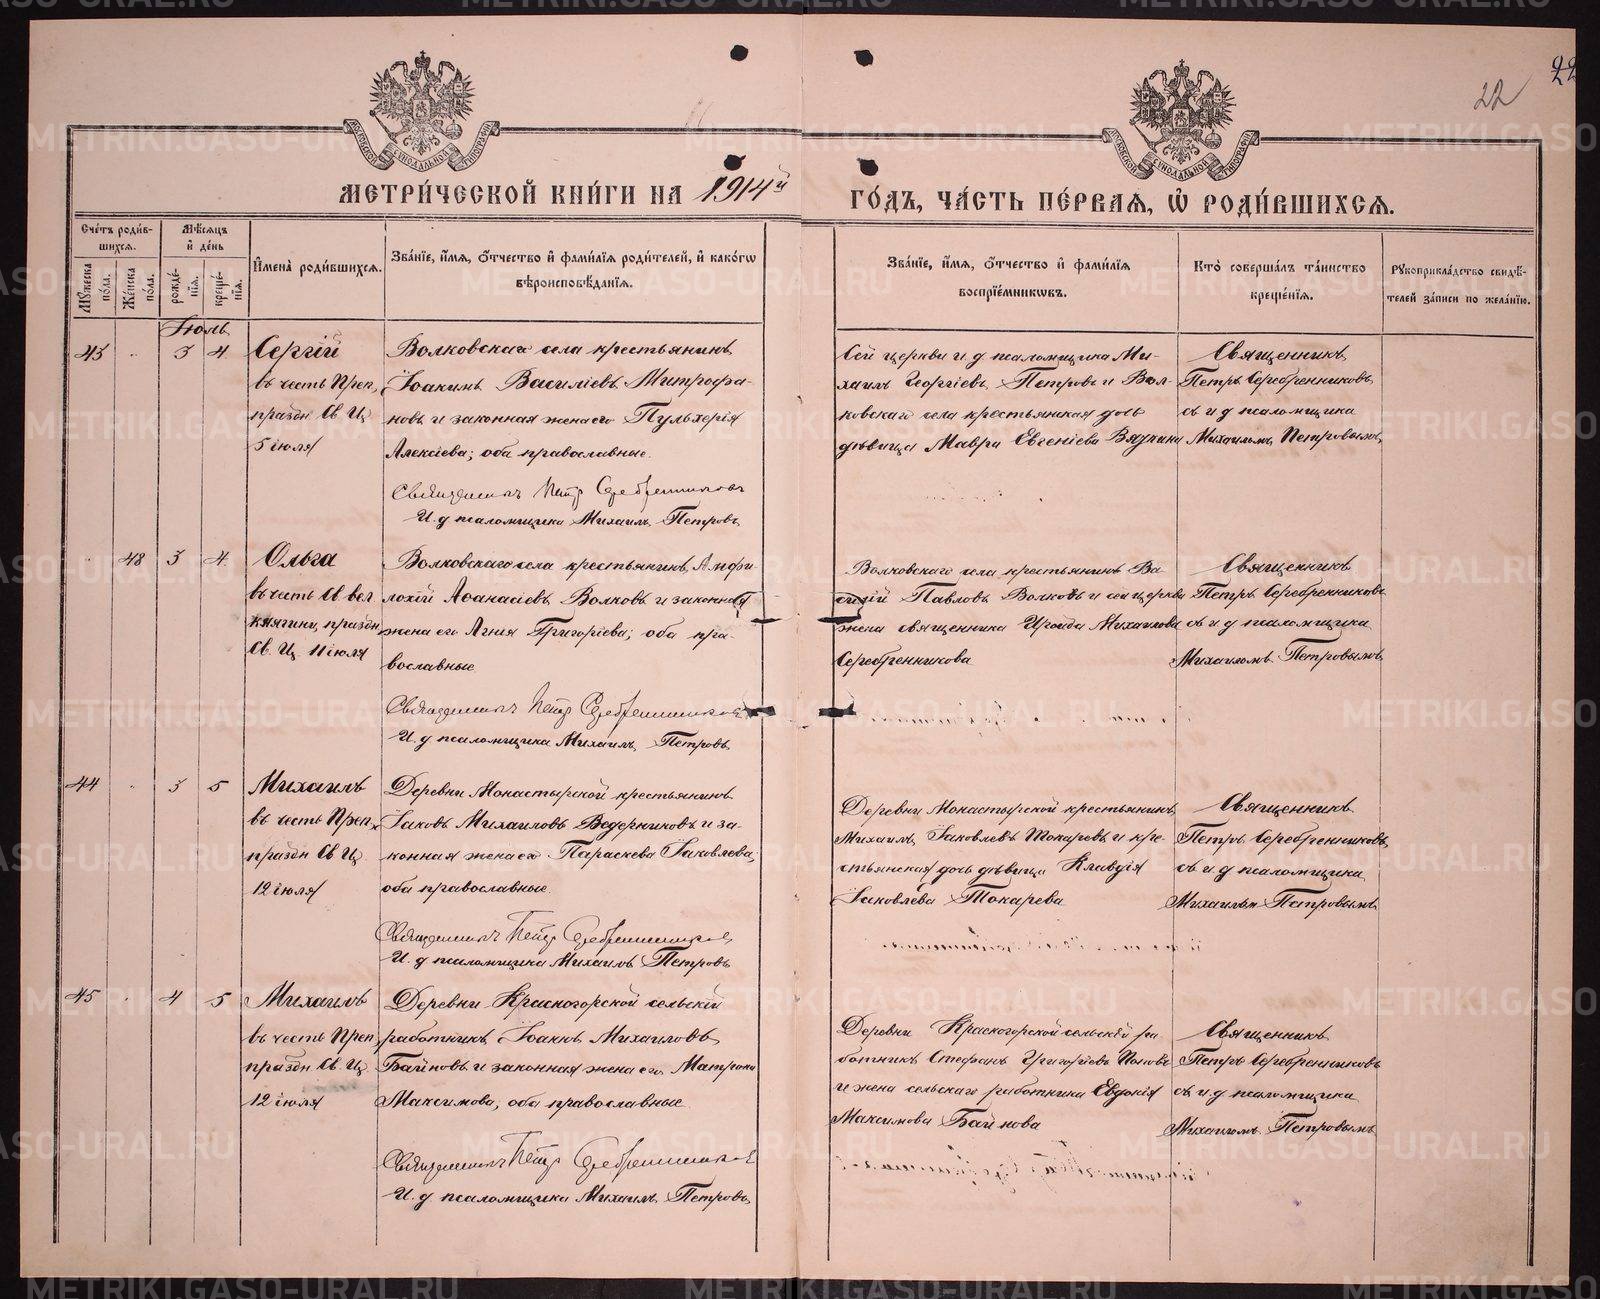 22
22
МОСКОВСКОЙ СѴНОДАЛЬНОЙ ТИПОГРАФІИ
МОСКОВСКОЙ СѴНОДАЛЬНОЙ ТИПОГРАФІИ
МЕТРИ́ЧЕСКОЙ КНИ́ГИ НА 1914й
ГО́ДЪ, ЧА́СТЬ ПЕ́РВАѦ, Ѡ҆ РОДИ́ВШИХСѦ.
Сче́тъ роди́в-
шихся.
Мꙋжеска по́ла.
Же́нска по́ла.
Мѣ́сѧцъ
и҆ де́нь
рожде́нїѧ.
креще́нїѧ.
И҆мена̀ роди́вшихсѧ.
Зва́нїе, и҆́мѧ, ѻ҆́тчество и҆ фами́лїѧ роди́телей, и҆ како́гѡ
вѣроисповѣ́данїѧ.
Зва́нїе, и҆́мѧ, ѻ҆́тчество и҆ фами́лїѧ
воспрїе́мникѡвъ.
Кто̀ соверша́лъ та́инство
креще́нїѧ.
Рꙋкоприкла́дство свидѣ́-
телей за́писи по жела́нїю.
Іюль
43 . 3 4
Сергій
въ честь Преп,
праздн Св. Ц
5 іюля
Волковскаго села крестьянинъ
Іоакимъ Василіевъ Митрофа-
новъ и законная жена его Пульхерія
Алексіева; оба православные.
Священникъ Петръ Серебренниковъ
И. д псаломщика Михаилъ Петровъ
Сей церкви и. д псаломщика Ми-
хаилъ Георгіевъ Петровъ и Вол-
ковскаго села крестьянская дочь
дѣвица Мавра Евгеніева Вяткина
Священникъ
Петръ Серебренниковъ
съ и д псаломщика
Михаиломъ Петровымъ
. 48 3 4
Ольга
въ честь Св. вел
княгини, праздн
Св. Ц 11 іюля
Волковскаго села крестьянинъ Амфи-
лохій Аѳанасіевъ Волковъ и законная
жена его Агнія Григоріева; оба пра-
вославные
Священникъ Петръ Серебренниковъ
И. д псаломщика Михаилъ Петровъ
Волковскаго села крестьянинъ Ва-
силій Павловъ Волковъ и сей церкви
жена священника Ираида Михаилова
Серебренникова
Священникъ
Петръ Серебренниковъ
съ и д псаломщика
Михаиломъ Петровымъ
44 . 3 5
Михаилъ
въ честь Преп,
праздн Св Ц
12 іюля
Деревни Монастырской крестьянинъ
Іаковъ Михаиловъ Ведерниковъ и за-
конная жена его Параскева Іаковлева;
оба православные
Священникъ Петръ Серебренниковъ
И. д псаломщика Михаилъ Петровъ
Деревни Монастырской крестьянинъ
Михаилъ Іаковлевъ Токаревъ и кре-
стьянская дочь дѣвица Клавдія
Іаковлева Токарева
Священникъ
Петръ Серебренниковъ
съ и д псаломщика
Михаиломъ Петровымъ
45 . 4 5
Михаилъ
въ честь Преп,
праздн Св. Ц
12 іюля
Деревни Красногорской сельскій
работникъ Іоаннъ Михаиловъ
Байновъ и законная жена его Матрона
Максимова, оба православные
Священникъ Петръ Серебренниковъ
И. д псаломщика Михаилъ Петровъ
Деревни Красногорской сельскій ра-
ботникъ Стефанъ Григоріевъ
и жена сельскаго работника Евдокія
Максимова Байнова
Священникъ
Петръ Серебренниковъ
съ и д псаломщика
Михаиломъ Петровымъ
METRIKI.GASO-URAL.RU